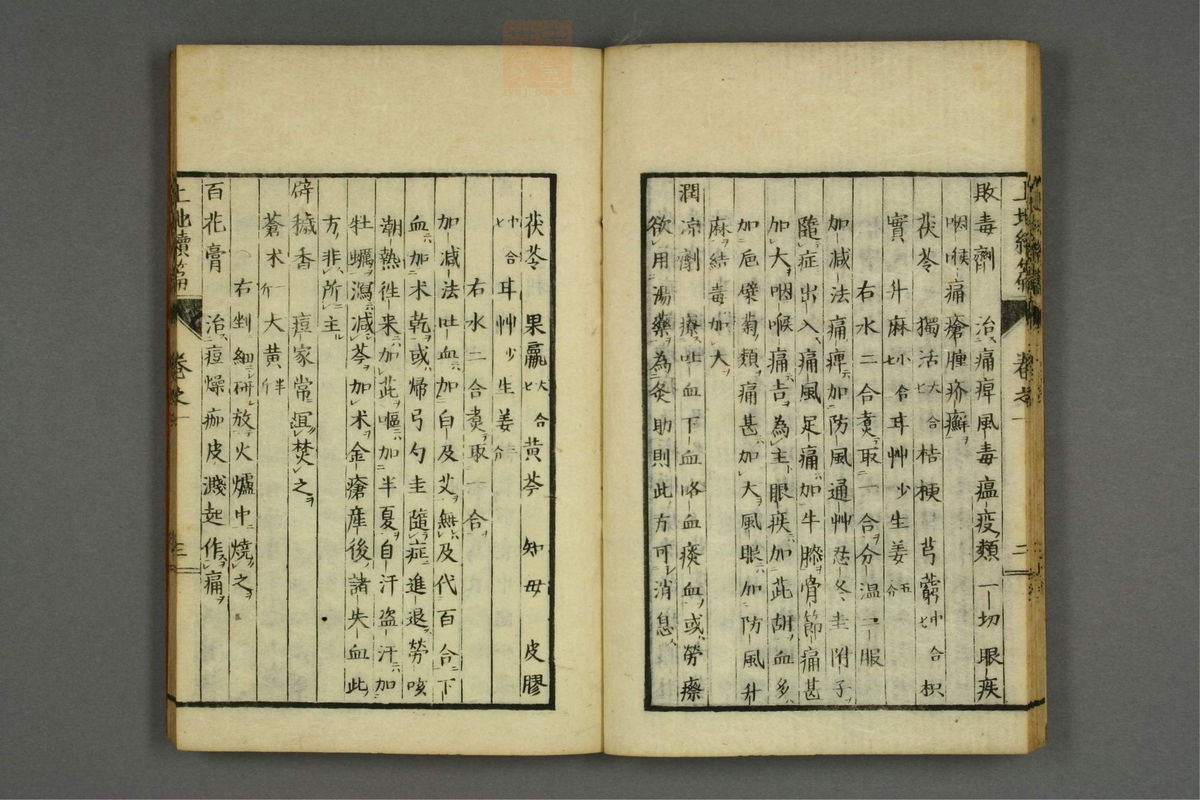 敗毒劑 治痛痺風毒瘟疫類一切眼疾
咽喉痛瘡腫疥癬
茯苓 獨活大七合 桔梗 芎藭中七合 枳
實 升麻小七合 耳艸少 生姜五分
右水二合煑取一合分温二服
加減法痛痺加防風通艸忍冬圭附子
隨症出入痛風足痛加牛膝骨節痛甚
加大咽喉痛吉為主眼疾加茈胡血多
加巵檗菊類痛甚加大風眼加防風升
麻結毒加大
潤凉劇 療吐血下血咯血痰血或勞瘵
欲用湯藥為灸助則此方可消息
卷之一
二
茯苓 果臝大七合 黄芩 知母 皮膠
中七合 耳艸少 生姜三分
右水二合煑取一合
加減法吐血加白及艾無及代百合下
血加术乾或㷌弓勺圭隨症進退勞咳
潮熱徃来加茈嘔加半夏自汗盗汗加
牡蠣瀉减芩加术金瘡産後諸失血此
方非所主
辟穢香 痘家常宜焚之
蒼术一斤 大黄半斤
右剉細研放火爐中燒之
百花膏 治痘燥痂皮濺起作痛
上池續篇
卷之一
三